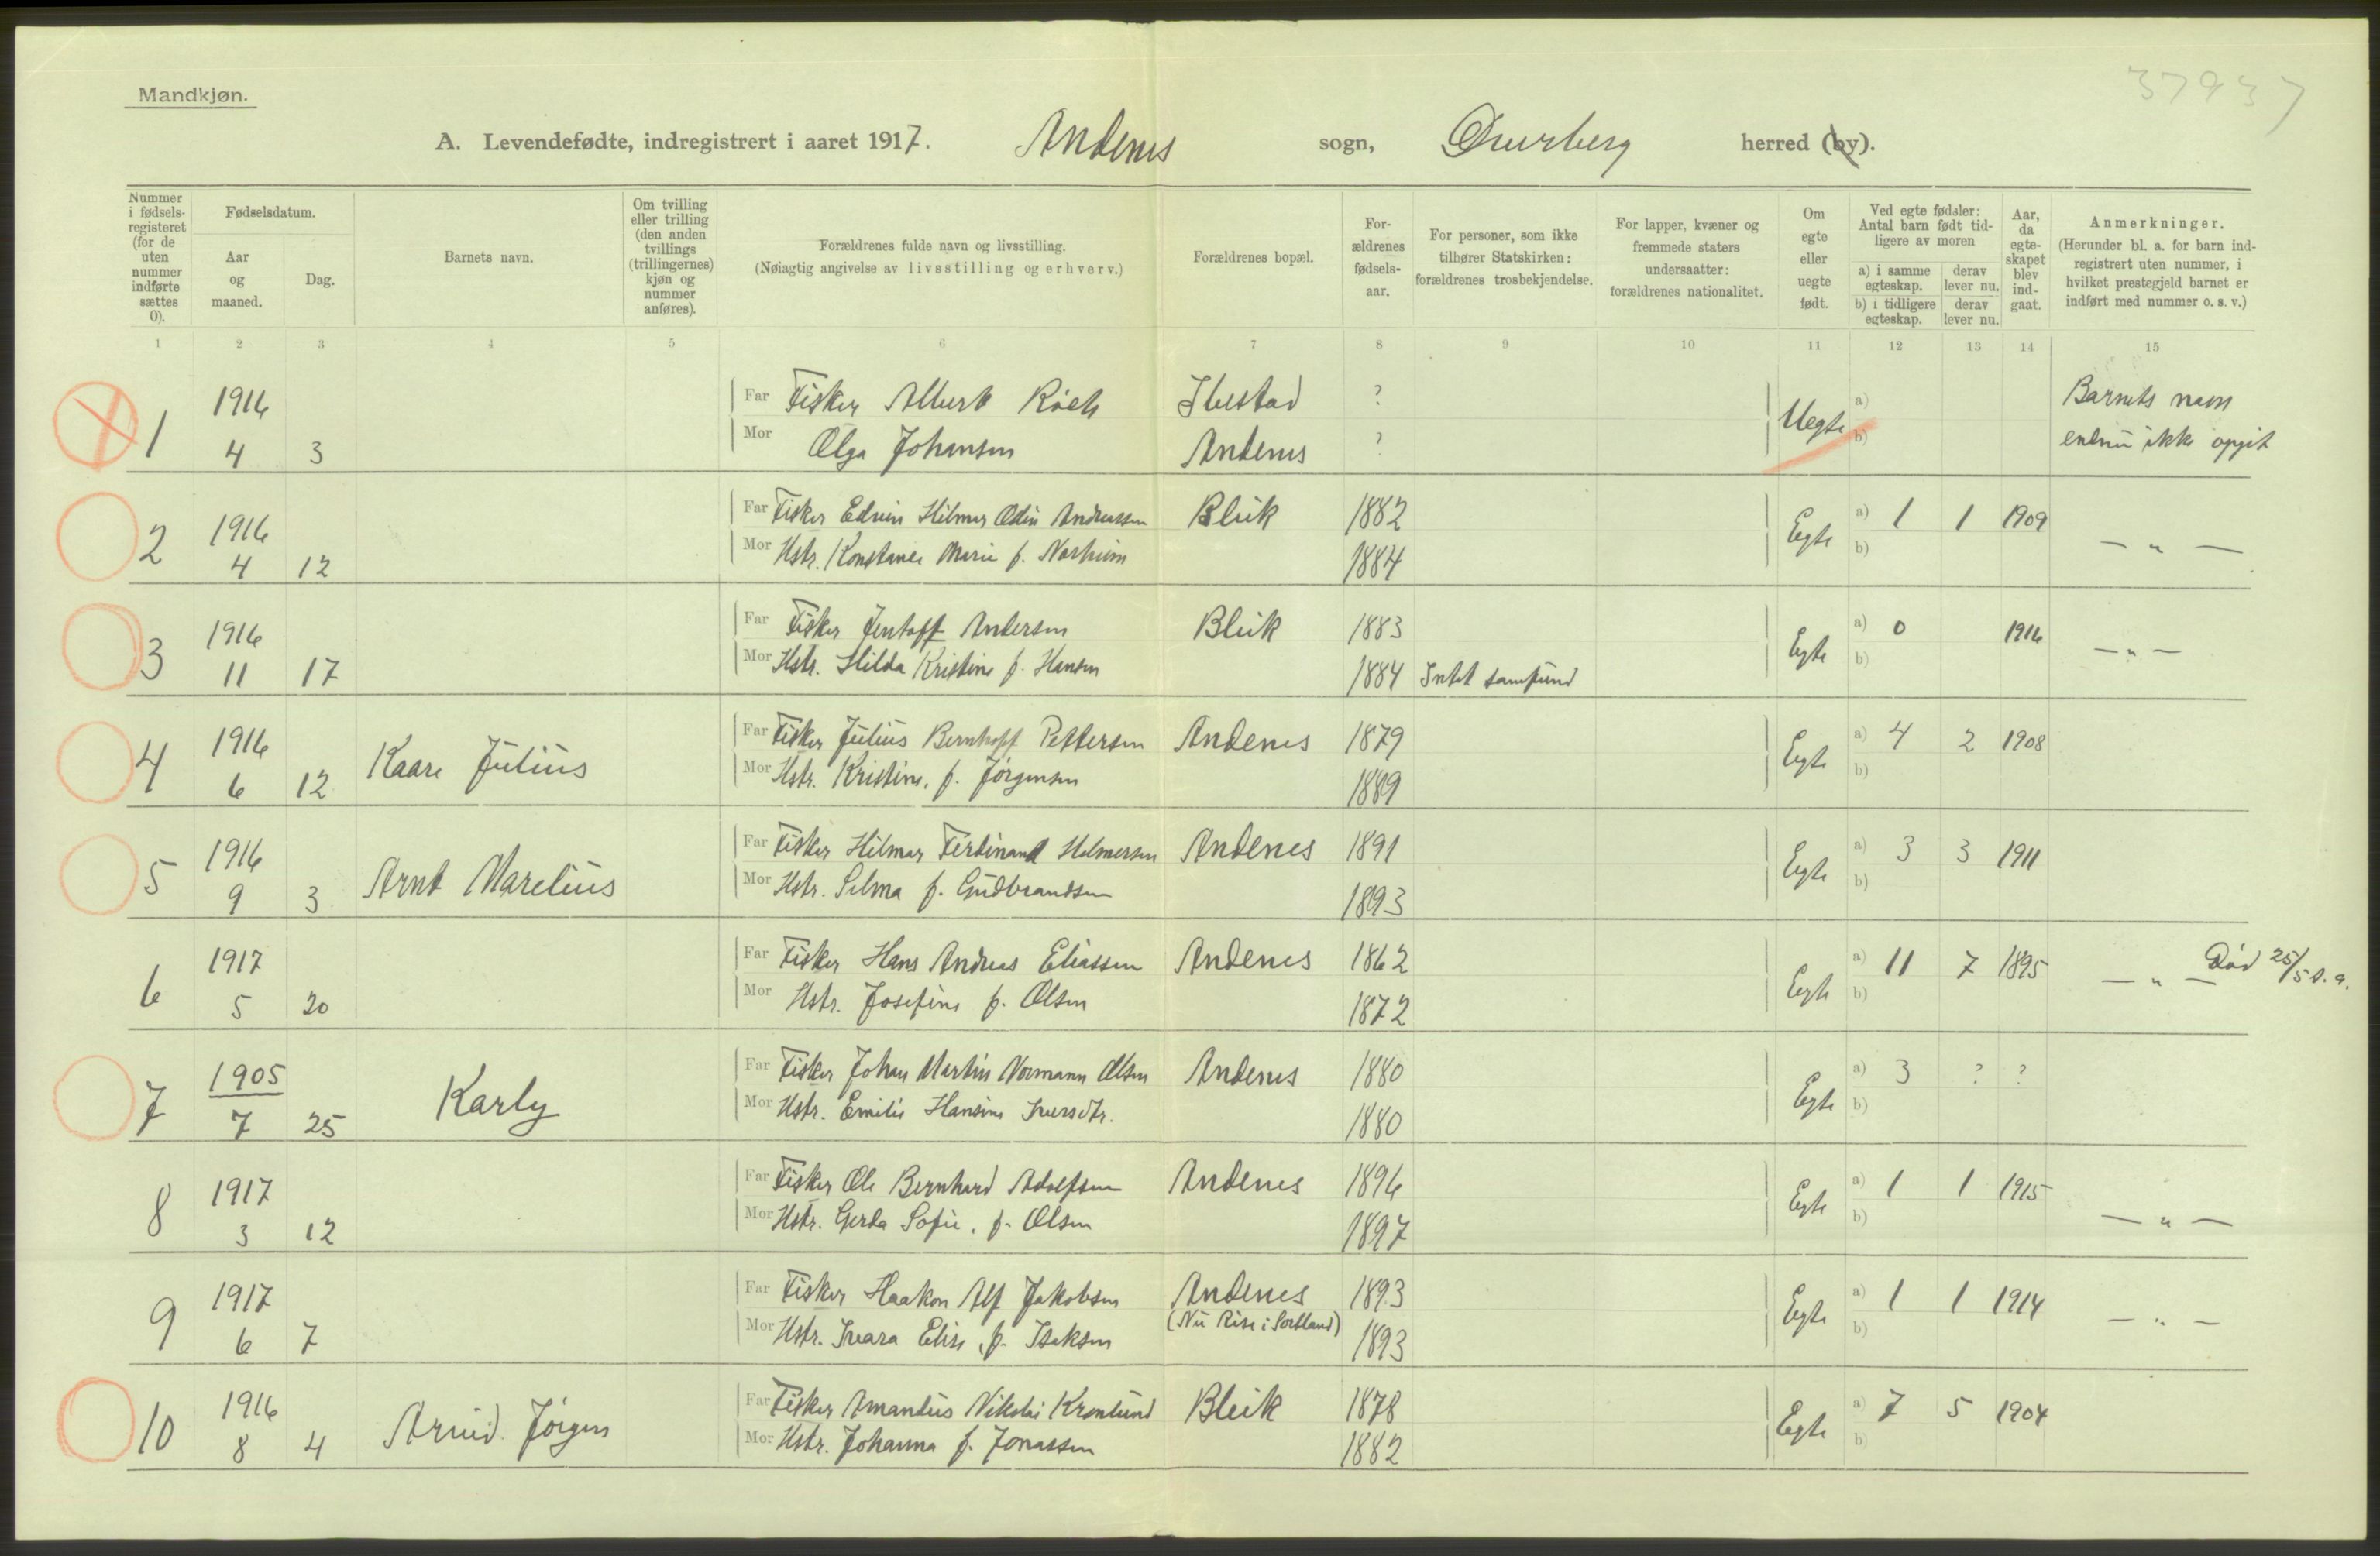 37937
Mandkjøn.
A. Levendefødte, indregistrert i aaret 1917. Andenes sogn, Dverberg herred (by).
Nummer i fødsels-registeret (for de uten nummer indførte sættes 0).
Fødselsdatum.
Aar og maaned.
Dag.
Barnets navn.
Om tvilling eller trilling (den anden tvillings (trillingernes) kjøn og nummer anføres).
Forældrenes fulde navn og livsstilling.
(Nøiagtig angivelse av livsstilling og erhverv.)
Forældrenes bopæl.
For-ældrenes fødsels-aar.
For personer, som ikke tilhører Statskirken: forældrenes trosbekjendelse.
For lapper, kvæner og fremmede staters undersaatter: forældrenes nationalitet.
Om egte eller uegte født.
Ved egte fødsler: Antal barn født tid-ligere av moren
a) i samme egteskap.
derav lever nu.
b) i tidligere egteskap.
derav lever nu.
Aar, da egte-skapet blev ind-gaat.
Anmerkninger.
(Herunder bl. a. for barn ind-registrert uten nummer, i hvilket prestegjeld barnet er indført med nummer o. s. v.)
1 2 3 4 5 6 7 8 9 10 11 12 13 14 15
1 1916 Far Fisker Albert Ibestad ? Uegte a) Barnets navn
4 3 Mor Olga Johansen Andenes ? b) endnu ikke opgit
2 1916 Far Fisker Edvin Hilmar Odin Andreassen Bleik 1882 Egte a) 1 1 1909
4 12 Mor Hstr. Konstance Marie f. 1884 b) — " —
3 1916 Far Fisker Jentoff Andersen Bleik 1883 Egte a) 0 1916
11 17 Mor Hstr. Hilda Kristine f. Hansen 1884 Intet samfund b) — " —
4 1916 Kaare Julius Far Fisker Julius Bernhoff Pettersen Andenes 1879 Egte a) 4 2 1908
6 12 Mor Hstr. Kristine, f. Jørgensen 1889 b)
5 1916 Arnt Marelius Far Fisker Hilmar Ferdinand Helmersen Andenes 1891 Egte a) 3 3 1911
9 3 Mor Hstr. Selma f. Gudbrandsen 1893 b)
6 1917 Far Fisker Hans Andreas Eliassen Andenes 1862 Egte a) 11 7 1895 — " — Død 25/5 s. a.
5 20 Mor Hstr. Josefine f. Olsen 1872 b)
7 1905 Karly Far Fisker Johan Martin Normann Olsen Andenes 1880 Egte a) 3 ? ?
7 25 Mor Hstr. Emilie Hansine Iversdtr. 1880 b)
8 1917 Far Fisker Ole Bernhard Adolfsen Andenes 1896 Egte a) 1 1 1915
3 12 Mor Hstr. Gerda Sofie, f. Olsen 1897 b) — " —
9 1917 Far Fisker Haakon Alf Jakobsen Andenes 1893 Egte a) 1 1 1914
6 7 Mor Hstr. Ivara Elise, f. Isaksen (Nu Rise i Sortland) 1893 b) — " —
10 1916 Arvid Jørgen Far Fisker Amandus Nikolai Kronlund Bleik 1878 Egte a) 7 5 1904
8 4 Mor Hstr. Johanna f. Jonassen 1882 b)